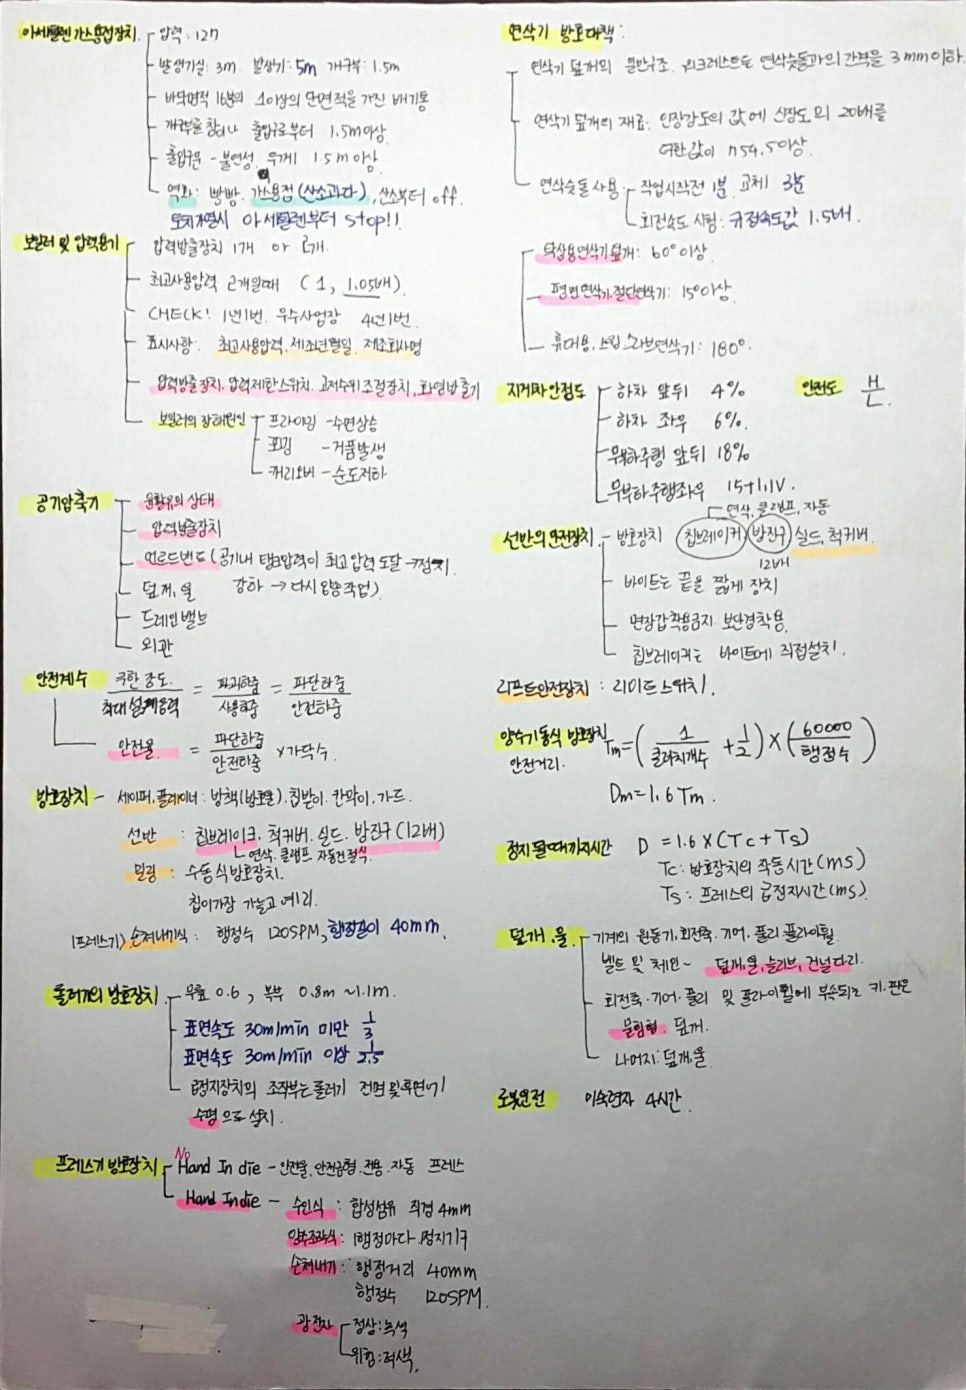 아세틸렌 가스용접장치
압력: 127
발생기실: 3m 발생기: 5m 개구부: 1.5m
바닥면적 16분의 1이상의 단면적을 가진 배기통
개구부를 창이나 출입구로부터 1.5m이상
출입구문 - 불연성, 두께 1.5m이상
역화: 빵빵. 가스용접 (산소과다), 산소부터 off
토치가열시 아세틸렌부터 stop!!
보일러 및 압력용기
압력방출장치 1개 or 2개.
최고사용압력 2개일때 (1, 1.05배).
CHECK! 1년1번. 우수사업장 4년1번
표시사항: 최고사용압력, 제조년월일, 제조회사명
압력방출장치, 압력제한스위치, 고저수위조절장치, 화염방출기
보일러의 장해원인
프라이밍 - 수면상승
포밍 - 거품발생
캐리오버 - 순도저하
공기압축기
윤활유의 상태
압력방출장치
언로드밸브 (공기내 탱크압력이 최고압력 도달 → 정지.
강하 → 다시 압축작업)
덮개, 울
드레인밸브
외관
안전계수 극한강도 / 최대설계응력 = 파괴하중 / 사용하중 = 파단하중 / 안전하중
안전율 = 파단하중 / 안전하중 × 가닥수
방호장치 - 세이퍼, 플레이너: 방책(방호울), 칩받이, 칸막이, 가드.
선반 : 칩브레이크, 척커버, 실드, 방진구 (12배)
연삭, 클램프, 자동조정식.
밀링 : 수동식방호장치.
칩이가장 가늘고 예리.
(프레스기) 손쳐내기식 : 행정수 120SPM, 행정길이 40mm.
롤러기의 방호장치
무릎 0.6, 복부 0.8m ~ 1.1m.
표면속도 30m/min 미만 1/3
표면속도 30m/min 이상 1/2.5
급정지장치의 조작부는 롤러기 전면 및 후면에
수평으로 설치.
프레스기 방호장치
No Hand In die - 안전울, 안전금형, 전용, 자동 프레스
Hand In die - 수인식 : 합성섬유 직경 4mm
양수조작식: 1행정마다 정지기구
손쳐내기 : 행정거리 40mm
행정수 120SPM.
광전자
정상: 녹색
위험: 적색.
연삭기 방호대책 :
연삭기 덮개의 일반구조. 워크레스트는 연삭숫돌과의 간격을 3mm이하.
연삭기 덮개의 재료: 인장강도의 값에 신장도의 20배를
더한값이 754.5이상.
연삭숫돌 사용
작업시작전 1분, 교체 3분
회전속도 시험: 규정속도값 1.5배.
탁상용연삭기 덮개: 60°이상.
평면연삭기, 절단연삭기: 15°이상.
휴대용, 스윙, 스라브연삭기: 180°.
지게차 안정도
하차 앞뒤 4%
하차 좌우 6%.
무부하주행 앞뒤 18%
무부하주행좌우 15+1.1V.
안전도 H / L
연삭, 클램프, 자동
선반의 안전장치 - 방호장치 칩브레이커, 방진구, 실드, 척커버.
12배
바이트는 끝을 짧게 장치
면장갑착용금지. 보안경착용.
칩브레이커는 바이트에 직접설치.
리프트안전장치 : 리미트스위치.
양수기동식 방호장치 Tm = ( 1 / 클러치개수 + 1/2 ) × ( 60000 / 행정수 )
안전거리.
Dm = 1.6 Tm.
정지될때까지시간 D = 1.6 × (Tc + Ts)
Tc: 방호장치의 작동시간 (ms)
Ts: 프레스의 급정지시간 (ms)
덮개, 울
기계의 원동기, 회전축, 기어, 풀리, 플라이휠,
벨트 및 체인 ~ 덮개, 울, 슬리브, 건널다리.
회전축·기어·풀리 및 플라이휠에 부속되는 키·핀은
묻힘형, 덮개.
나머지: 덮개, 울
로봇운전 이수현자 4시간.